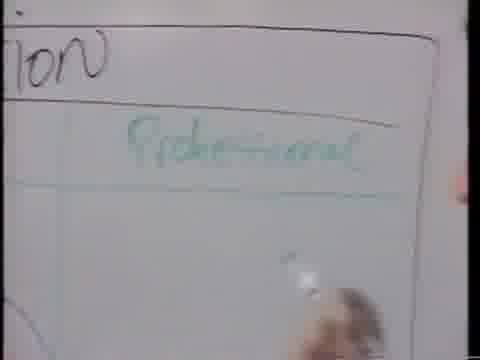 ION
Professional